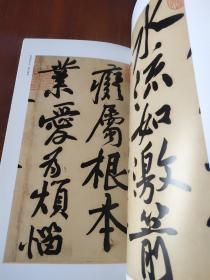 水流如激箭
癡屬根本
業愛為煩惱